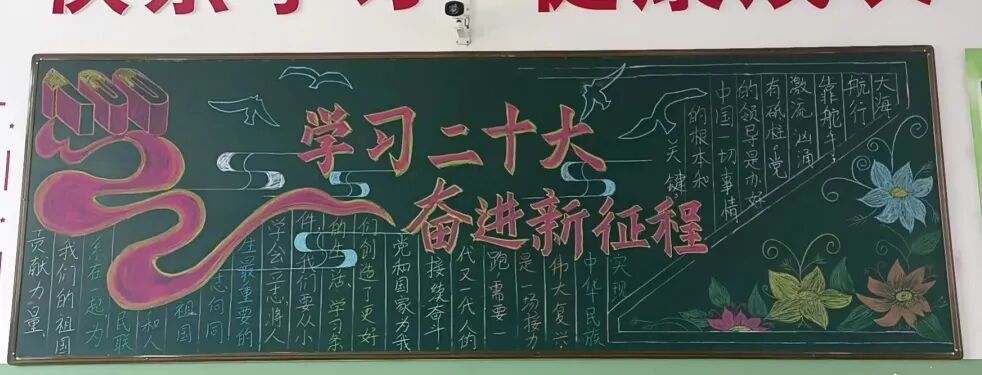 学习 健康成长
学习二十大
奋进新征程
大海
航行
靠舵手,
激流汹涌
有砥柱。党
的领导是办好
中国一切事情
的根本和
关键。
实现
中华民族
伟大复兴
是一场接力
跑,需要一
代又一代人的
接续奋斗,
党和国家为我
们创造了更好
的生活、学习条
件,我们要从小
学会立志,将人
生最重要的
志向同
祖国
和人
民联
系在一起,为
我们的祖国
贡献力量.